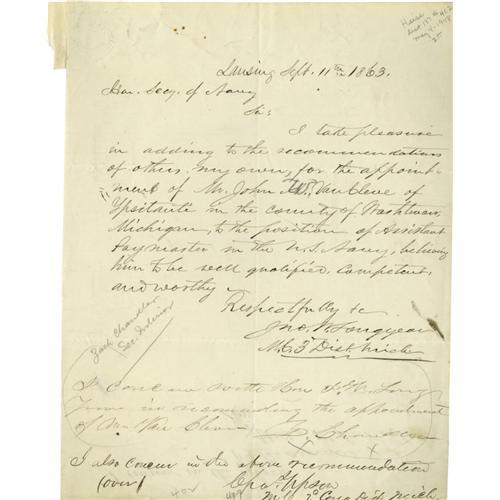 Lansing Sept. 11th 1863.
Hon. Secy. of Navy
Sir:
I take pleasure
in adding to the recommendations
of others, my own, for the appoint-
ment of Mr. John W. Van Cleve of
Ypsilanti in the county of Washtenaw,
Michigan, to the position of Assistant
Paymaster in the U.S. Navy, believing
him to be well qualified, competent,
and worthy.
Respectfully &c
Jno. W. Longyear
M.C. 3d Dist. Mich
Zach Chandler
Sec. Interior
I concur with Hon J. W. Long-
year in recommending the appointment
of Mr Van Cleve Z. Chandler
I also concur in the above recommendation
(over) Chas. Upson
M.C. 2d Cong Dist. Mich.